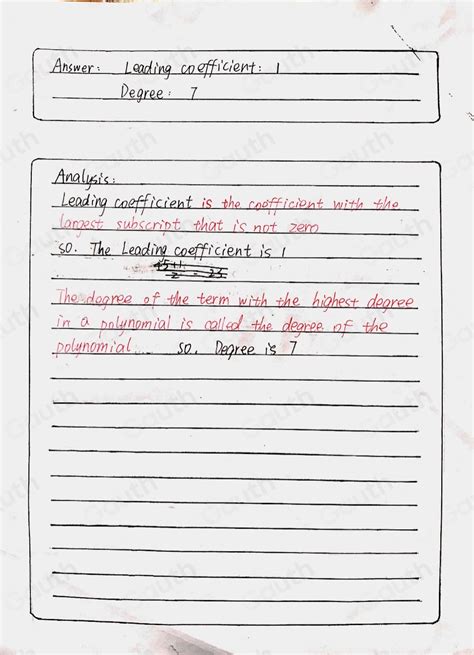 Answer: Leading coefficient: 1
Degree: 7
Analysis:
Leading coefficient is the coefficient with the
largest subscript that is not zero
so. The Leading coefficient is 1
The dogree of the term with the highest degree
in a polynomial is called the degree of the
polynomial so. Degree is 7